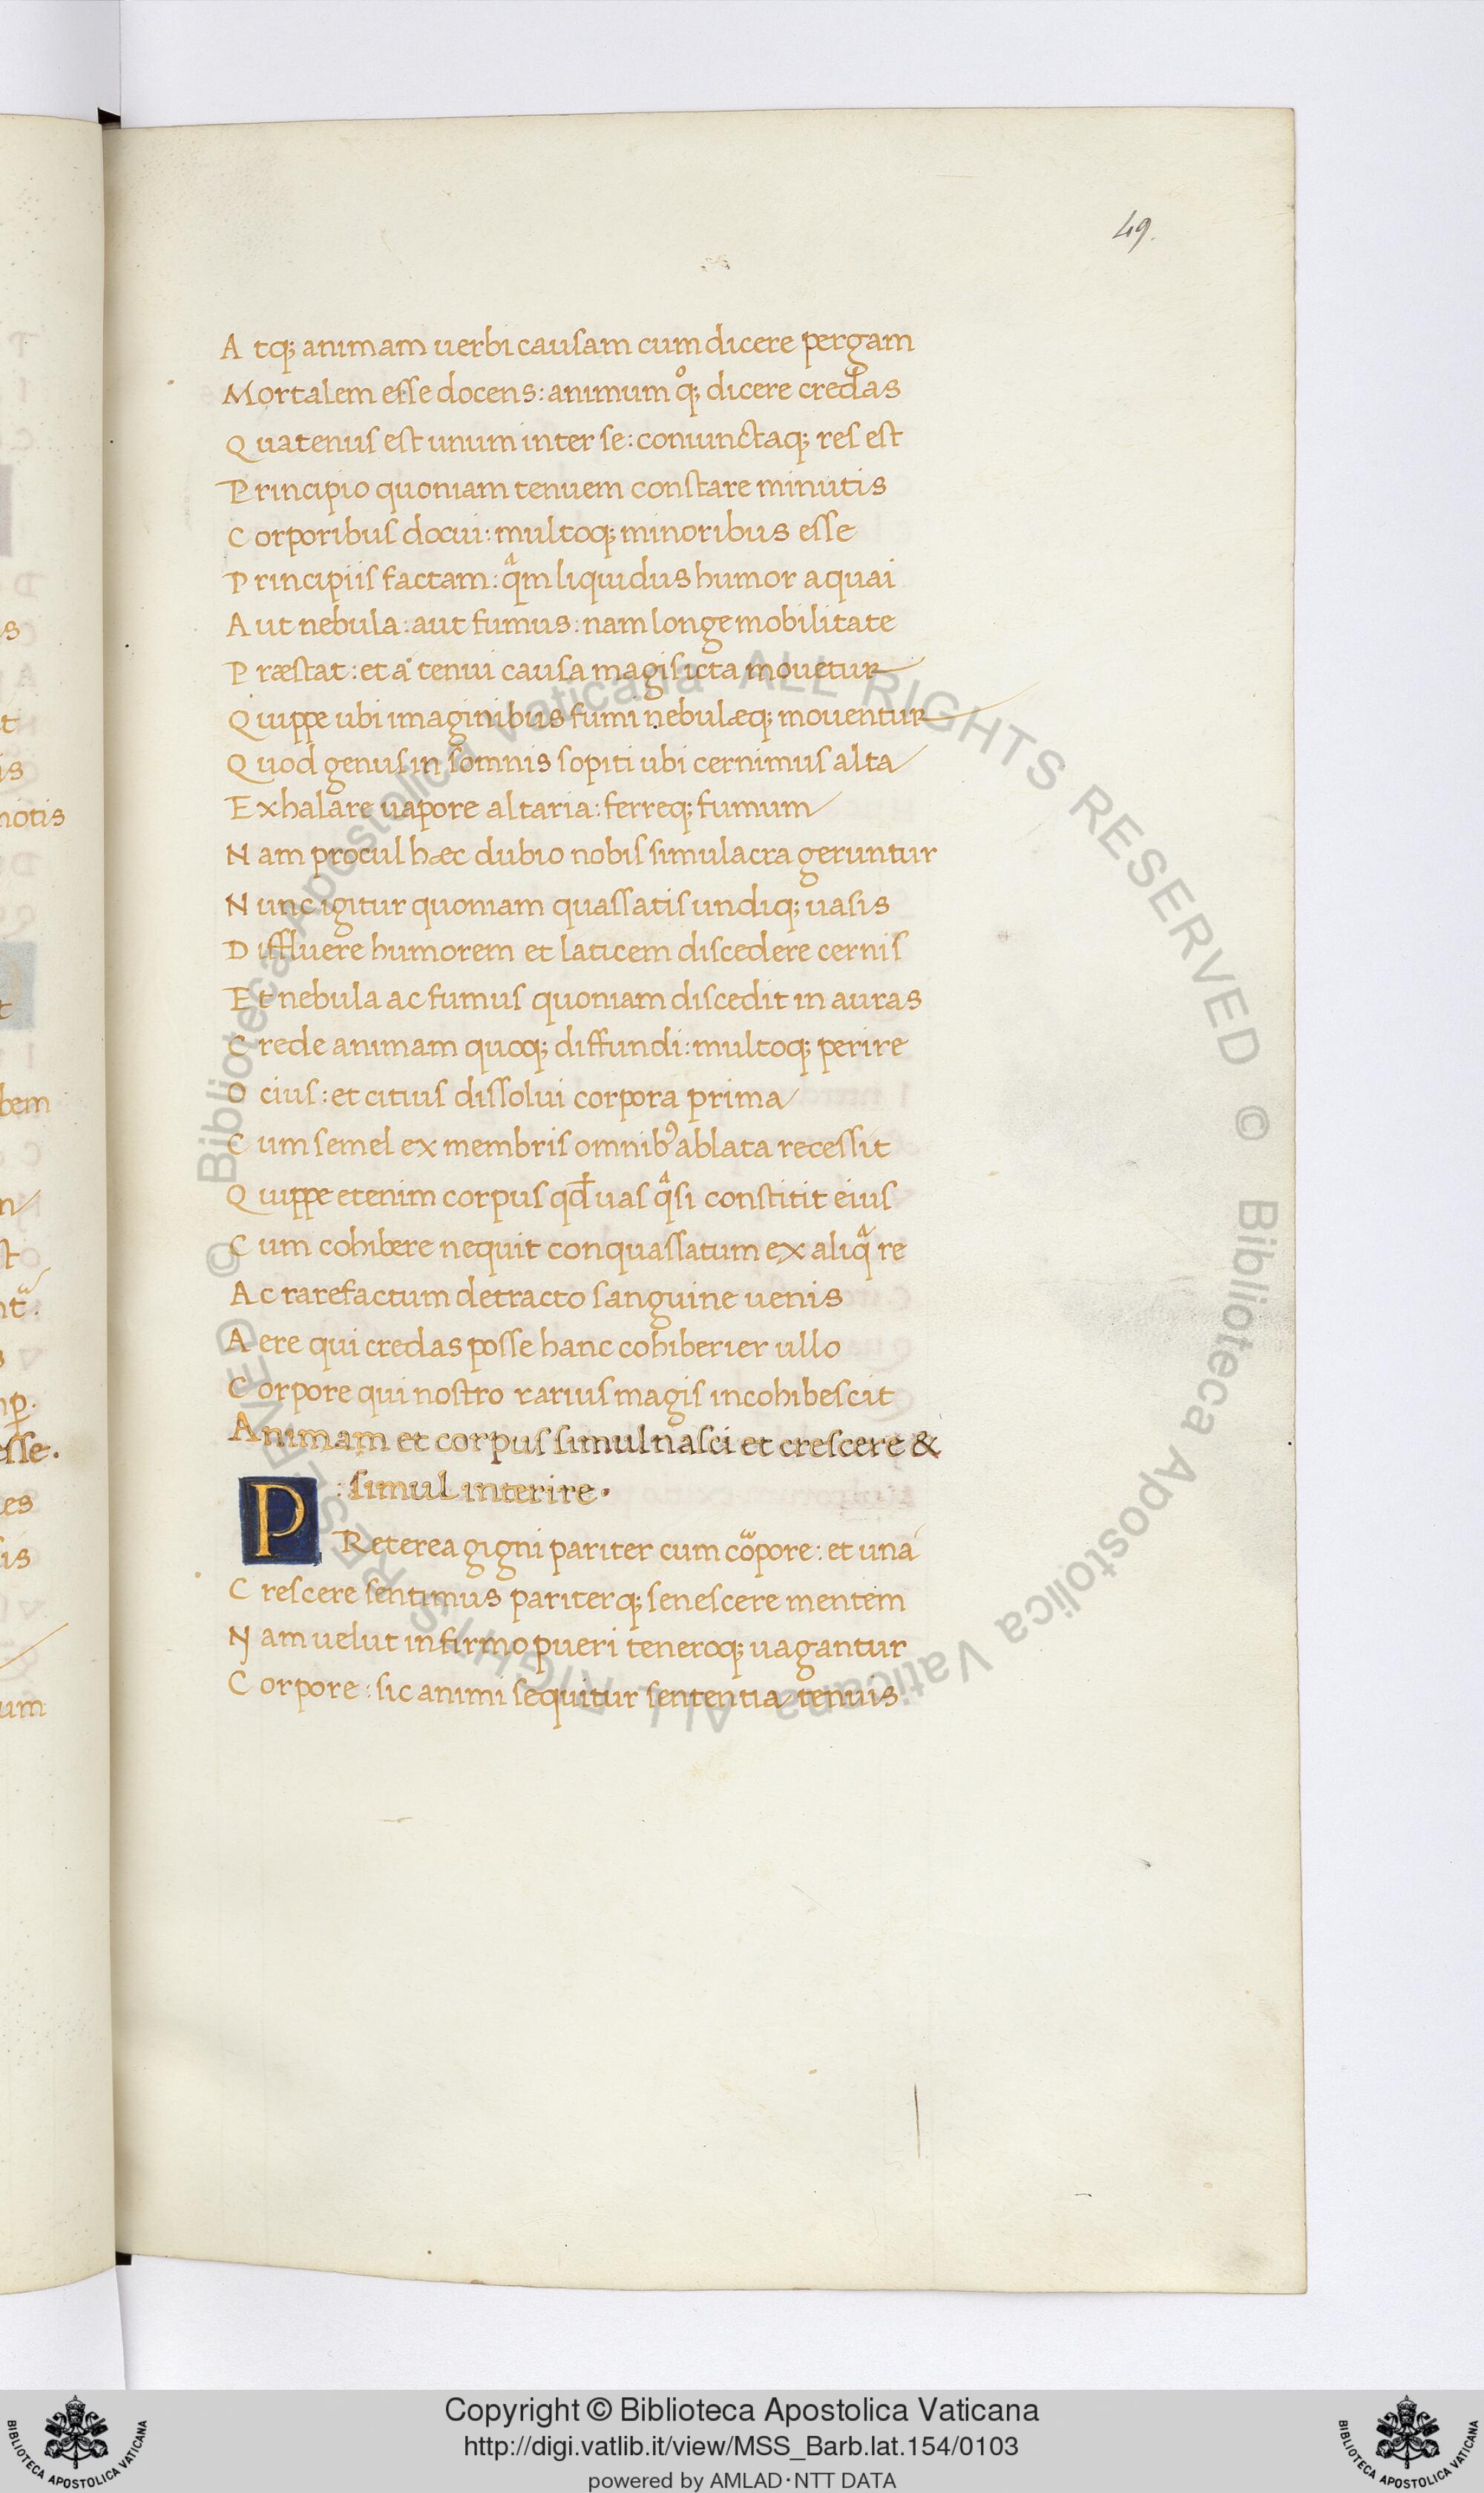 49.
Atq; animam uerbi causam cum dicere pergam
Mortalem esse docens: animum qͦ; dicere credas
Quatenus est unum inter se: coniunctaq; res est
Principio quoniam tenuem constare minutis
Corporibus docui: multoq; minoribus esse
Principiis factam: qᷓm liquidus humor aquai
Aut nebula: aut fumus: nam longe mobilitate
Præstat: et a tenui causa magis icta mouetur
Quippe ubi imaginibus fumi nebulæq; mouentur
Quod genus in somnis sopiti ubi cernimus alta
Exhalare uapore altaria: ferreq; fumum
Nam procul hæc dubio nobis simulacra geruntur
Nunc igitur quoniam quassatis undiq; uasis
Diffluere humorem et laticem discedere cernis
Et nebula ac fumus quoniam discedit in auras
Crede animam quoq; diffundi: multoq; perire
Ocius: et citius dissolui corpora prima
Cum semel ex membris omnibꝰ ablata recessit
Quippe etenim corpus qd̄ uas qᷓsi constitit eius
Cum cohibere nequit conquassatum ex aliqᷓ re
Ac rarefactum detracto sanguine uenis
Aere qui credas posse hanc cohiberier ullo
Corpore qui nostro rarius magis incohibescit
Animam et corpus simul nasci et crescere &
: simul interire.
PReterea gigni pariter cum cōpore: et una
Crescere sentimus pariterq; senescere mentem
Nam uelut infirmo pueri teneroq; uagantur
Corpore: sic animi sequitur sententia tenuis
Copyright © Biblioteca Apostolica Vaticana
http://digi.vatlib.it/view/MSS_Barb.lat.154/0103
powered by AMLAD·NTT DATA